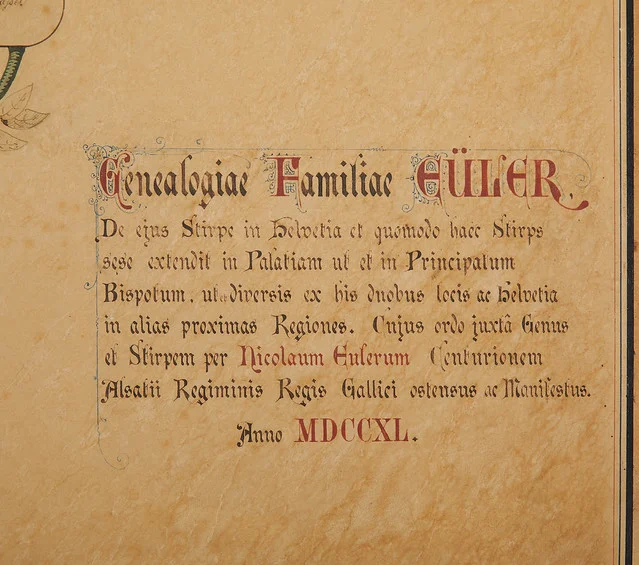 Genealogiae Familiae EÜLER.
De ejus Stirpe in Helvetia et quomodo haec Stirps
sese extendit in Palatiam ut et in Principatum
Bispotum, ut diversis ex his duobus locis ac Helvetia
in alias proximas Regiones. Cujus ordo juxtâ Genus
et Stirpem per Nicolaum Eulerum Centurionem
Alsatii Regiminis Regis Gallici ostensus ac Manifestus.
Anno MDCCXL.